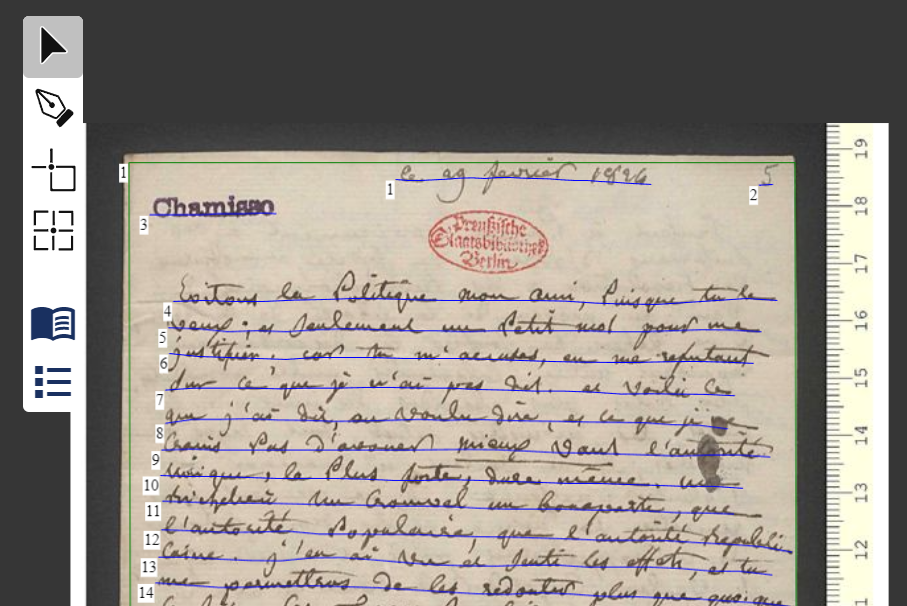 le 29 fevrier 1826
5
Chamisso
Preußische
Staatsbibliothek
Berlin
Evitons la Politique mon ami, Puisque tu le
veux; et seulement un Petit mot pour me
justifier. car tu m'accuses, en me reputant
sur ce que je n'ai pas dit. et voilà ce
que j'ai dit, ou voulu dire, et ce que je ne
crains Pas d'avouer mieux vaut l'autorité
unique, la Plus forte, dure même. un
Richelieu un Cromwel un bonaparte, que
l'autorité Populaire, que l'autorité Republi-
caine. j'en ai vu et senti les effets, et tu
me permettras de les redouter plus que quoique
1
1
2
3
4
5
6
7
8
9
10
11
12
13
14
19
18
17
16
15
14
13
12